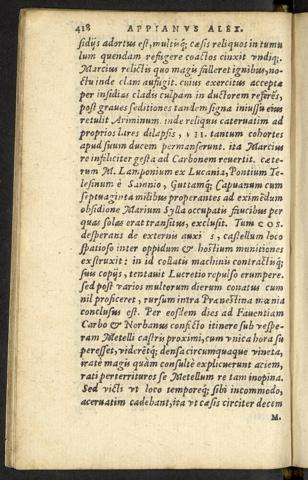 418 APPIANVS ALEX.
sidijs adortus est, multisq; cæsis reliquos in tumu
lum quendam refugere coactos cinxit vndiq;.
Marcius relictis quo magis falleret ignibus, no-
ctu inde clam aufugit. cuius exercitus acceptæ
per insidias cladis culpam in ductorem referēs,
post graues seditiones tandem signa iniussu eius
retulit Ariminum. inde reliquis cateruatim ad
proprios lares dilapsis, VII. tantum cohortes
apud suum ducem permanserunt. ita Marcius
re infeliciter gesta ad Carbonem reuertit. cæte-
rum M. Lamponium ex Lucania, Pontium Te-
lesinum è Samnio, Guttamq; Capuanum cum
septuaginta milibus properantes ad eximēdum
obsidione Marium Sylla occupatis faucibus per
quas solas erat transitus, exclusit. Tum COS.
desperans de externis auxiliis, castellum loco
spatioso inter oppidum & hostium munitiones
exstruxit: in id collatis machinis contractisq;
suis copijs, tentauit Lucretio repulso erumpere.
sed post varios multorum dierum conatus cum
nil proficeret, rursum intra Prænestina mœnia
conclusus est. Per eosdem dies ad Fauentiam
Carbo & Norbanus confecto itinere sub vespe-
ram Metelli castris proximi, cum vnica hora su
peresset, viderētq; densa circumquaque vineta,
iratè magis quàm consultè explicuerunt aciem,
rati perterrituros se Metellum re tam inopina.
Sed victi vt loco temporeq; sibi incommodo,
aceruatim cadebant, ita vt cæsis circiter decem
M.